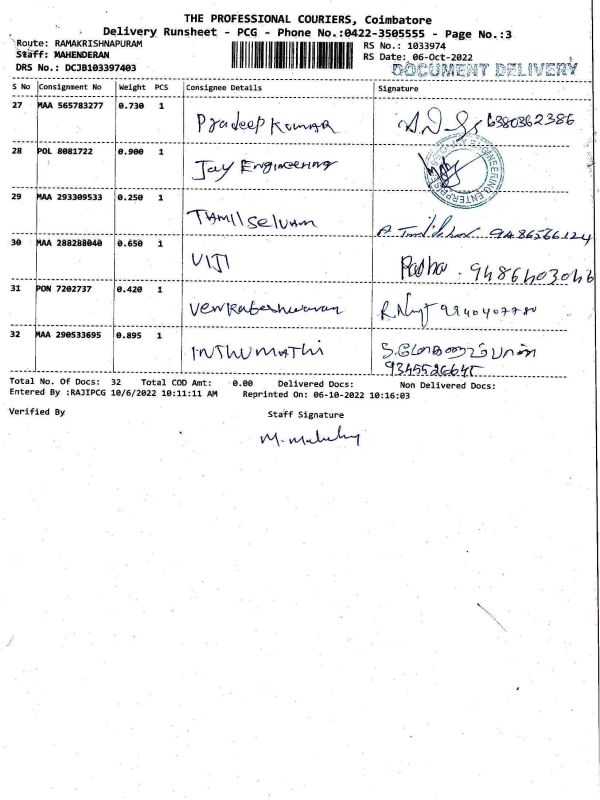 THE PROFESSIONAL COURIERS, Coimbatore
Delivery Runsheet - PCG - Phone No.:0422-3505555 - Page No.:3
Route: RAMAKRISHNAPURAM RS No.: 1033974
Staff: MAHENDERAN RS Date: 06-Oct-2022
DRS No.: DCJB103397403 DOCUMENT DELIVERY
S No Consignment No Weight PCS Consignee Details Signature
27 MAA 565783277 0.730 1 Pradeep Kumar 6380362386
28 POL 8081722 0.900 1 Jay Engineering
29 MAA 293309533 0.250 1 TAMilSelvam 9486566124
30 MAA 288288040 0.650 1 VIJI Padha . 9486403046
31 PON 7202737 0.420 1 Venkateshwaran 9940407780
32 MAA 290533695 0.895 1 INTHUMATHI
9345526645
Total No. Of Docs: 32 Total COD Amt: 0.00 Delivered Docs: Non Delivered Docs:
Entered By :RAJIPCG 10/6/2022 10:11:11 AM Reprinted On: 06-10-2022 10:16:03
Verified By Staff Signature